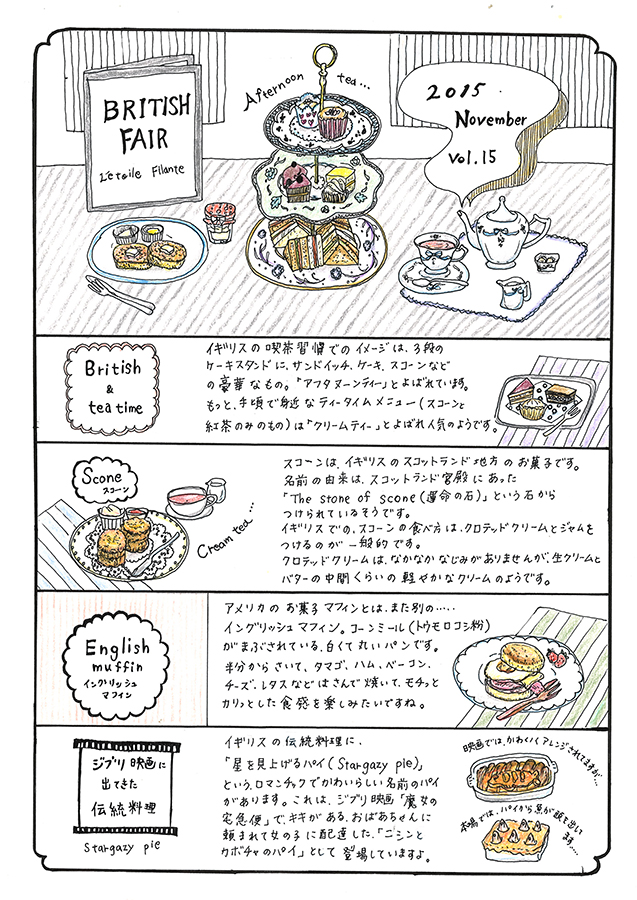 BRITISH
FAIR
L'etoile Filante
Afternoon tea...
2015
November
vol.15
British
&
tea time
イギリスの喫茶習慣でのイメージは、3段の
ケーキスタンドに、サンドイッチ、ケーキ、スコーンなど
の豪華なもの。「アフタヌーンティー」とよばれています。
もっと、手頃で身近なティータイムメニュー(スコーンと
紅茶のみのもの)は「クリームティー」とよばれ人気のようです。
Scone
スコーン
Cream tea...
スコーンは、イギリスのスコットランド地方のお菓子です。
名前の由来は、スコットランド宮殿にあった
「The stone of scone(運命の石)」という石から
つけられているそうです。
イギリスでの、スコーンの食べ方は、クロテッドクリームとジャムを
つけるのが一般的です。
クロテッドクリームは、なかなかなじみがありませんが、生クリームと
バターの中間くらいの軽やかなクリームのようです。
English
muffin
イングリッシュ
マフィン
アメリカのお菓子マフィンとは、また別の.....
イングリッシュマフィン。コーンミール(トウモロコシ粉)
がまぶされている、白くて丸いパンです。
半分からさいて、タマゴ、ハム、ベーコン、
チーズ、レタスなどはさんで焼いて、モチっと
カリっとした食感を楽しみたいですね。
ジブリ映画に
出てきた
伝統料理
Stargazy pie
イギリスの伝統料理に、
「星を見上げるパイ(Stargazy pie)」
という、ロマンチックでかわいらしい名前のパイ
があります。これは、ジブリ映画「魔女の
宅急便」で、キキがある、おばあちゃんに
頼まれて女の子に配達した、「ニシンと
カボチャのパイ」として登場していますよ。
映画では、かわいくアレンジされてますが...
本場では、パイから魚が顔を出し
ます....